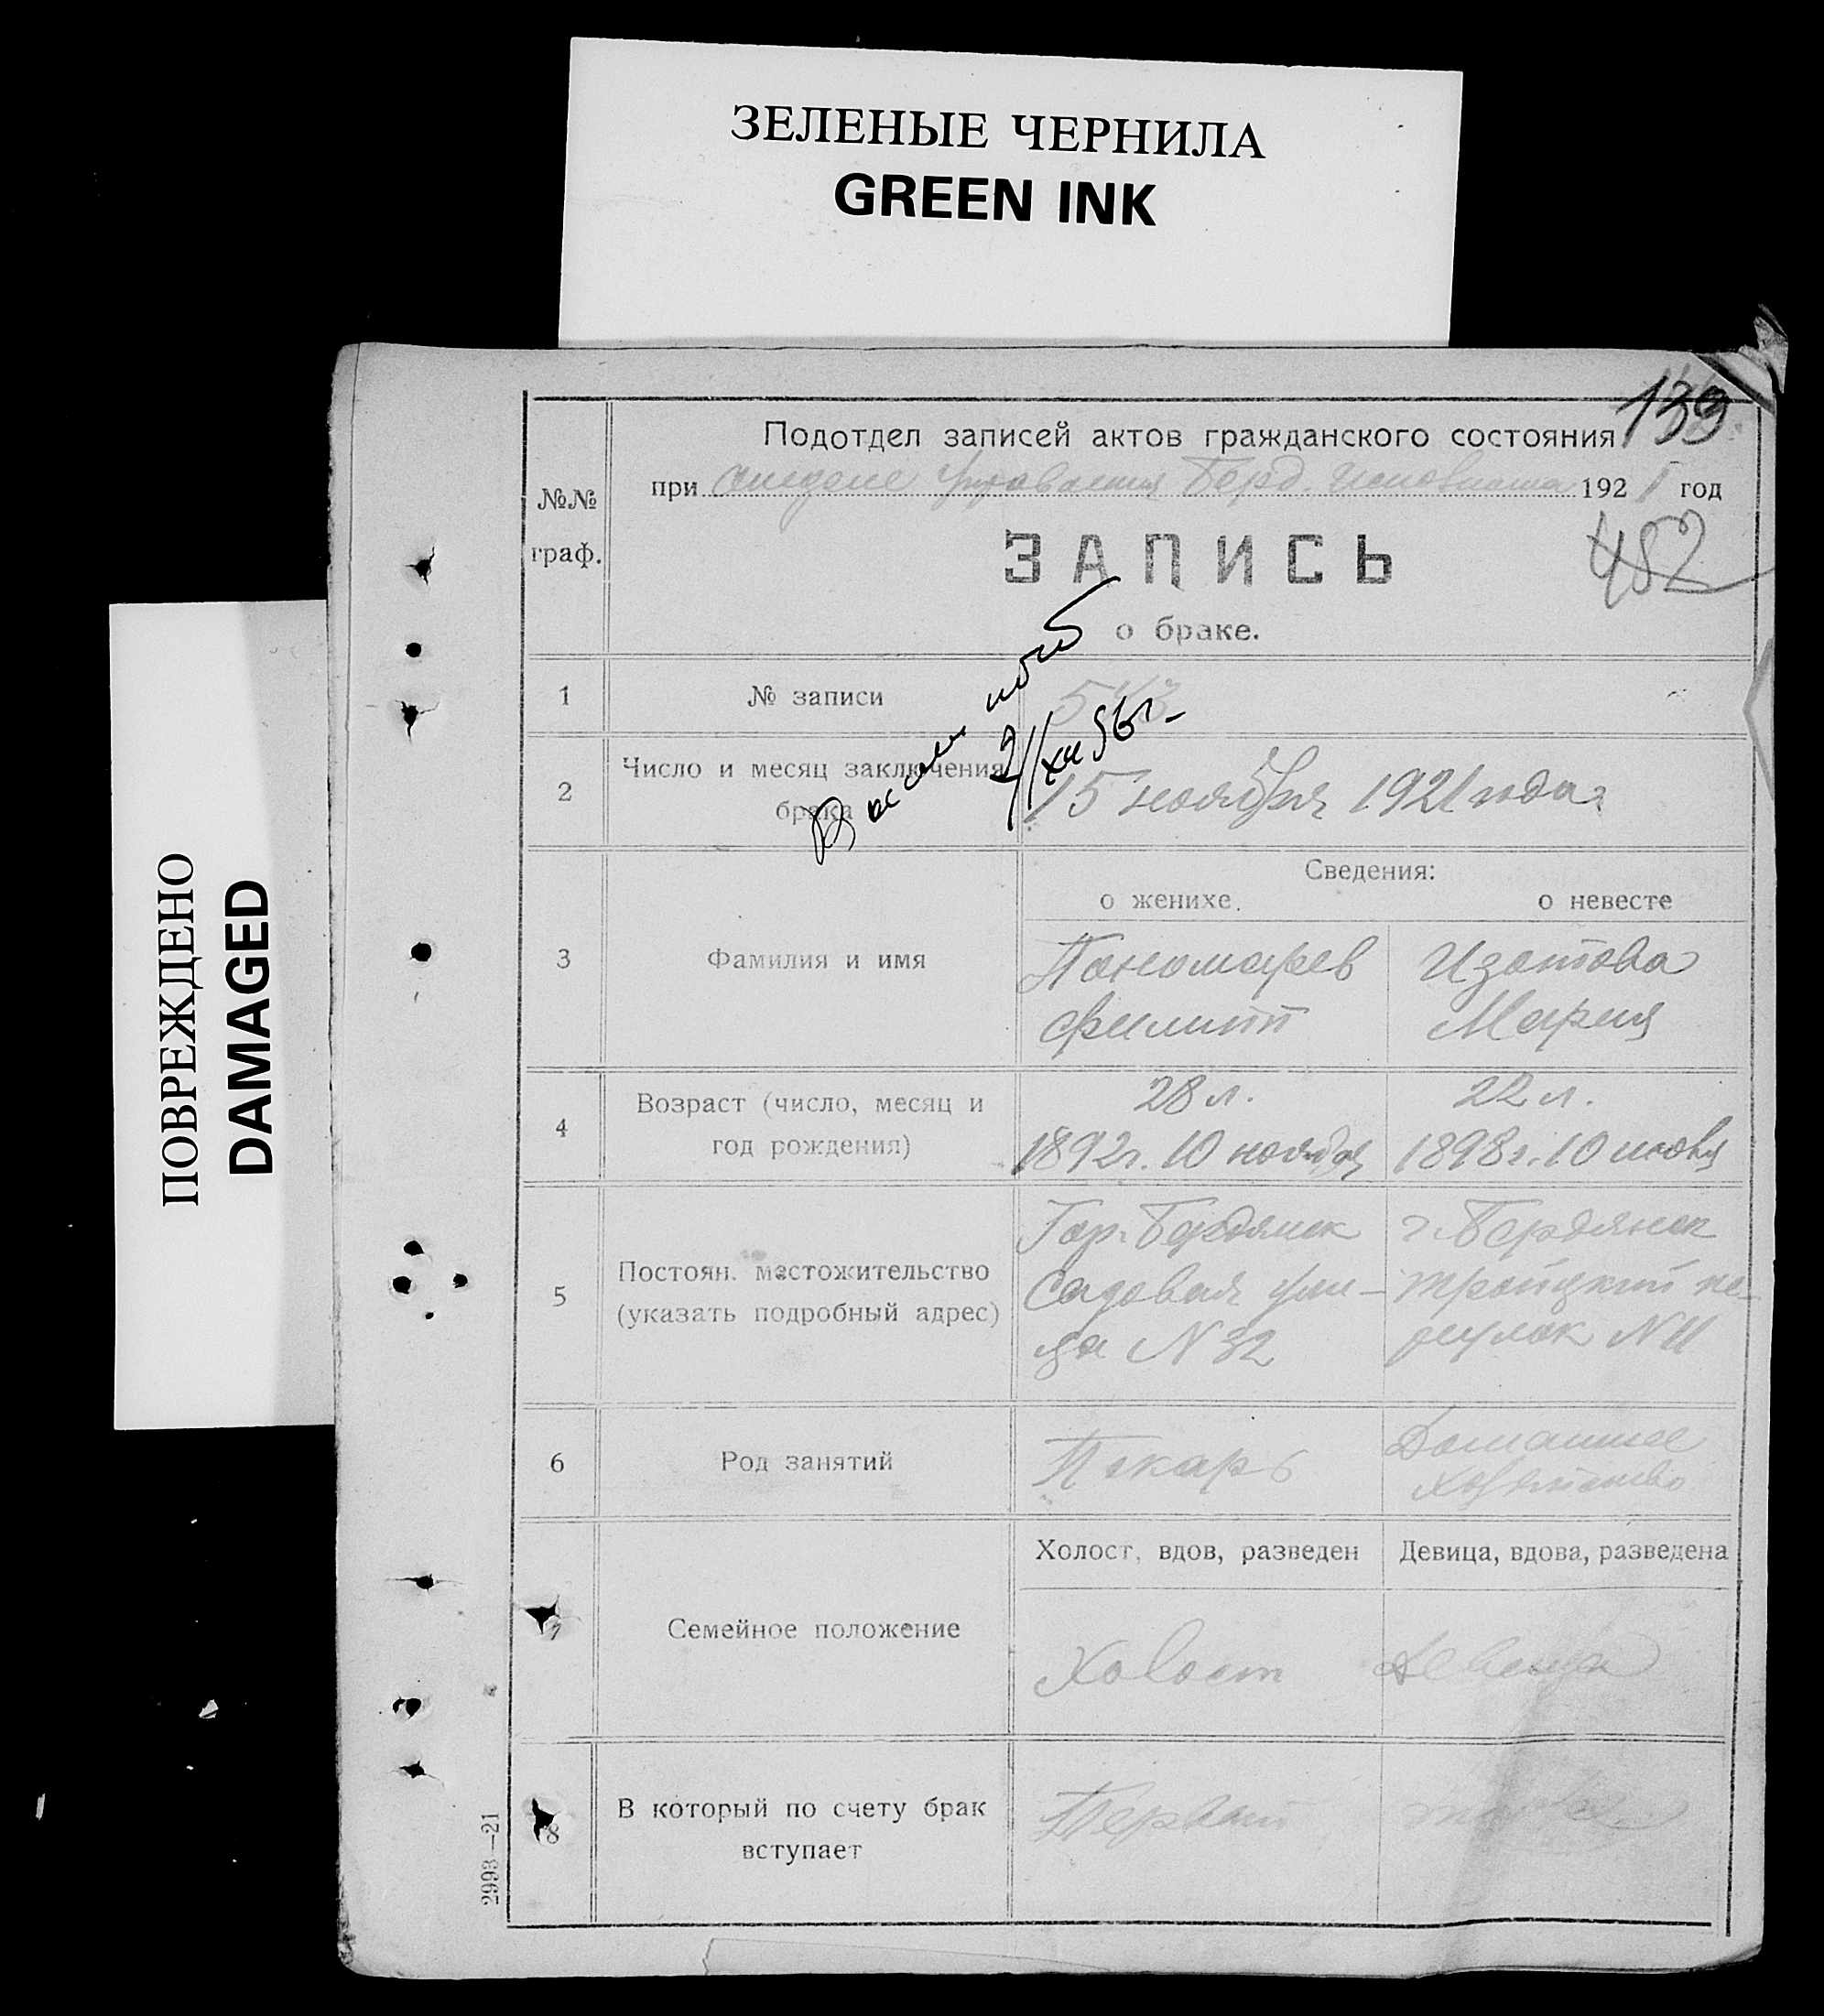 ЗЕЛЕНЫЕ ЧЕРНИЛА
GREEN INK
ПОВРЕЖДЕНО
DAMAGED
139
Подотдел записей актов гражданского состояния
при отделе Управления Берд. 1921 год
№№
граф.
ЗАПИСЬ
482
о браке.
1 № записи
2 Число и месяц заключения
брака
15 ноября 1921 года
Сведения:
о женихе. о невесте
3 Фамилия и имя
Пономарев Изотова
Филипп Мария
4 Возраст (число, месяц и
год рождения)
28 л. 22 л.
1892 г. 10 ноября 1898 г. 10
5 Постоян. местожительство
(указать подробный адрес)
Гор. Бердянск г. Бердянск
Садовая ули- Троицкий пе-
ца N 32 реулок N 11
6 Род занятий
Пекарь Домашнее
хозяйство
Холост, вдов, разведен Девица, вдова, разведена
7 Семейное положение
Холост девица
8 В который по счету брак
вступает
Первый
2993—21